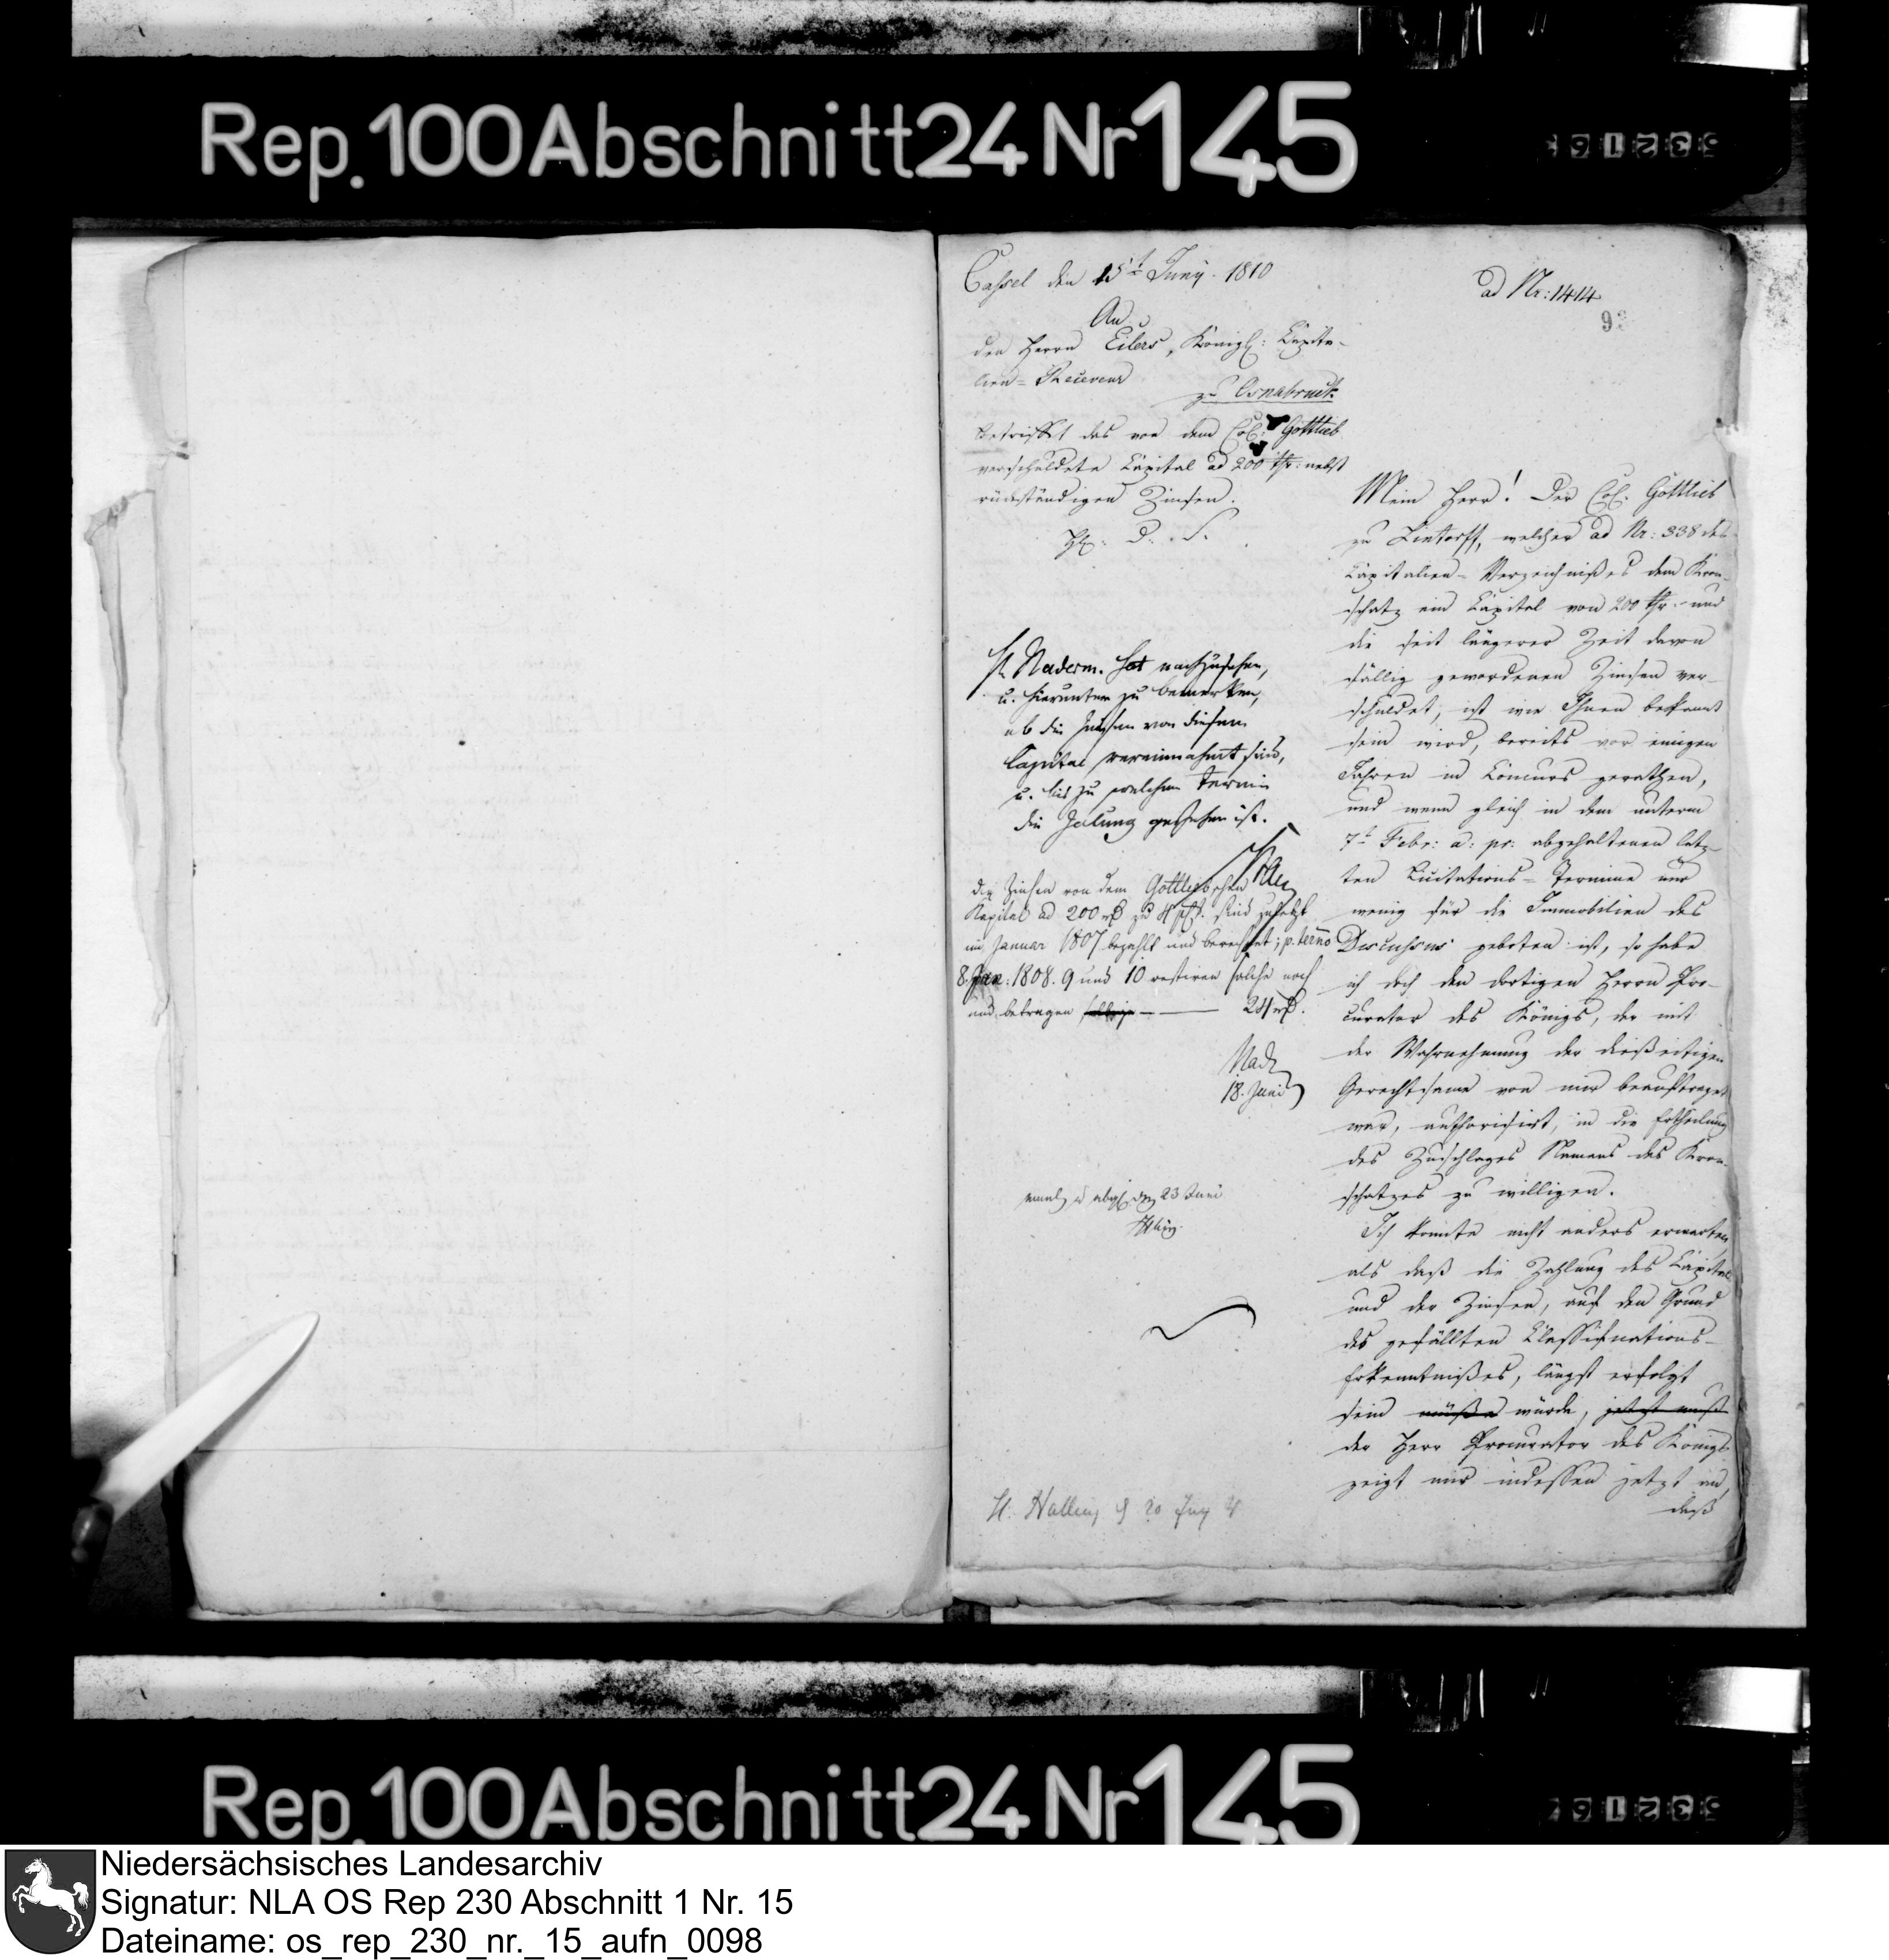 Rep. 100 Abschnitt 24 Nr 145
Cassel den 15t Juny. 1810
ad Nr: 1414
An
den Herrn Eilers, Königl: Capita-
lien-Receveur
zu Osnabrück
betrifft das von dem Col: Gottlieb
verschuldete Capital ad 200 thr: nebst
rückständigen Zinsen.
H. Naderm. hat nachzusehen,
u. hierunter zu bemerken,
ob die Zinsen von diesem
Capital vereinnahmt sind,
u. bis zu welchem Termin
die Zalung geschehen ist.
die Zinsen von dem Gottliebschen
Kapital ad 200 rt zu 4 pCt. sind zuletzt
im Januar 1807 bezahlt und berechnet; p. term̄o
8. Jan: 1808. 9 und 10 restiren solche noch
und betragen 24 rt.
Nad
18. Juni
mund. u abgs. den 23 Juni
H. Halling 20 Juny
Mein Herr! Der Col. Gottlieb
zu Lintorff, welcher ad Nr: 338 des
Capitalien-Verzeichnißes dem Kron-
schatz ein Capital von 200 thr. und
die seit längerer Zeit davon
fällig gewordenen Zinsen ver-
schuldet, ist wie Ihnen bekannt
sein wird, bereits vor einigen
Jahren in Concurs gerathen,
und wenn gleich in dem unterm
7t Febr: a: pr: abgehaltenen letz-
ten Licitations-Termine nur
wenig für die Immobilien des
Discussus geboten ist, so habe
ich doch den dortigen Herrn Pro-
curator des Königs, der mit
der Wahrnehmung der dießeitigen
Gerechtsame von mir beauftraget
war, authorisirt, in die Ertheilung
des Zuschlages Namens des Kron-
schatzes zu willigen.
Ich konnte nicht anders erwarten
als daß die Zahlung des Capitals
und der Zinsen, auf den Grund
des gefällten Classificnations-
Erkenntnißes, längst erfolgt
sein müßte würde, jetzt muß
der Herr Procurator des Königs
zeigt mir indessen jetzt an,
daß
Rep. 100 Abschnitt 24 Nr 145
Niedersächsisches Landesarchiv
Signatur: NLA OS Rep 230 Abschnitt 1 Nr. 15
Dateiname: os_rep_230_nr._15_aufn_0098